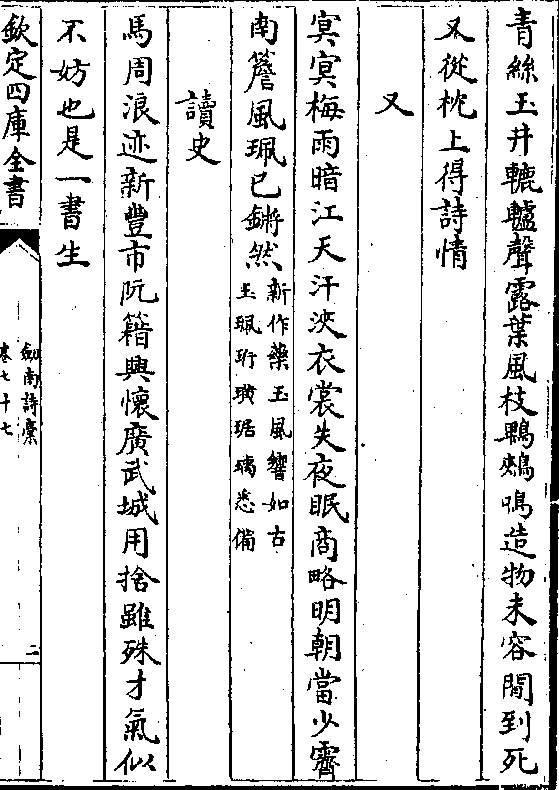 青絲玉井轆轤聲露葉風枝鵯鵊鳴造物未容閒到死
又從枕上得詩情
又
㝠㝠梅雨暗江天汗浹衣裳失夜眠商略明朝當少霽
南簷風珮已鏘然新作藥玉風響如古
玉珮珩璜琚瑀悉備
讀史
馬周浪迹新豐市阮籍興懷廣武城用捨雖殊才氣似
不妨也是一書生
欽定四庫全書
劍南詩槀
卷七十七
二